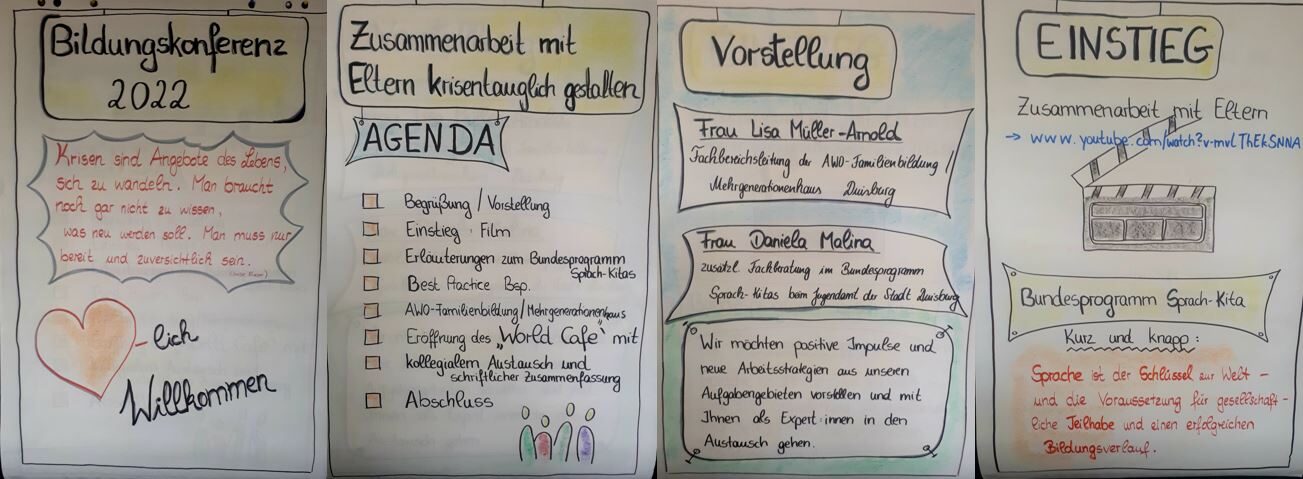 Bildungskonferenz
2022
Krisen sind Angebote des Lebens,
sich zu wandeln. Man braucht
noch gar nicht zu wissen,
was neu werden soll. Man muss nur
bereit und zuversichtlich sein.
-lich
Willkommen
Zusammenarbeit mit
Eltern krisentauglich gestalten
AGENDA
Begrüßung / Vorstellung
Einstieg : Film
Erläuterungen zum Bundesprogramm
Sprach-Kitas
Best Practice Bsp.
AWO-Familienbildung/Mehrgenerationenhaus
Eröffnung des „World Cafe“ mit
kollegialem Austausch und
schriftlicher Zusammenfassung
Abschluss
Vorstellung
Frau Lisa Müller-Arnold
Fachbereichsleitung der AWO-Familienbildung /
Mehrgenerationenhaus Duisburg
Frau Daniela Malina
zusätzl. Fachberatung im Bundesprogramm
Sprach-Kitas beim Jugendamt der Stadt Duisburg
Wir möchten positive Impulse und
neue Arbeitsstrategien aus unseren
Aufgabengebieten vorstellen und mit
Ihnen als Expert:innen in den
Austausch gehen.
EINSTIEG
Zusammenarbeit mit Eltern
→ www.youtube.com/watch?v=mvLThEkSNNA
Bundesprogramm Sprach-Kita
Kurz und knapp:
Sprache ist der Schlüssel zur Welt -
und die Voraussetzung für gesellschaft-
liche Teilhabe und einen erfolgreichen
Bildungsverlauf.